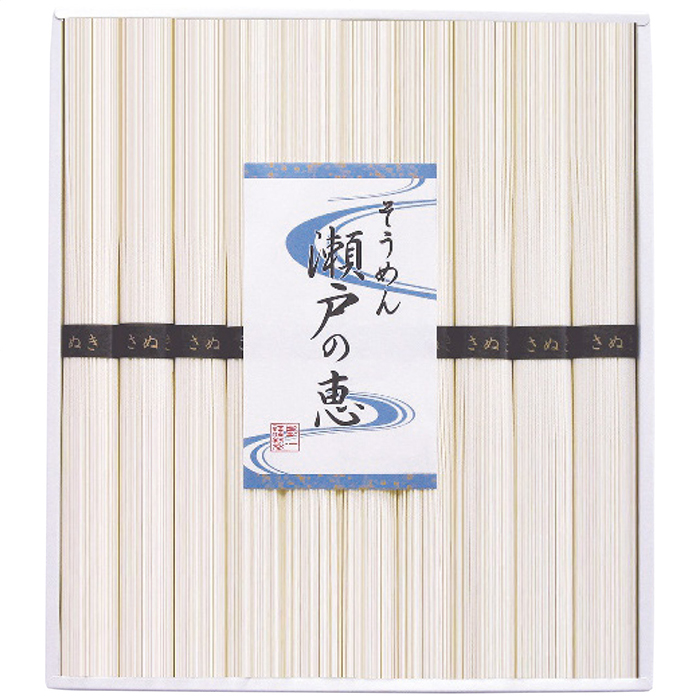 そうめん
瀬戸の恵
ぬき
さぬ
さぬ
さぬ
さぬ
さぬ